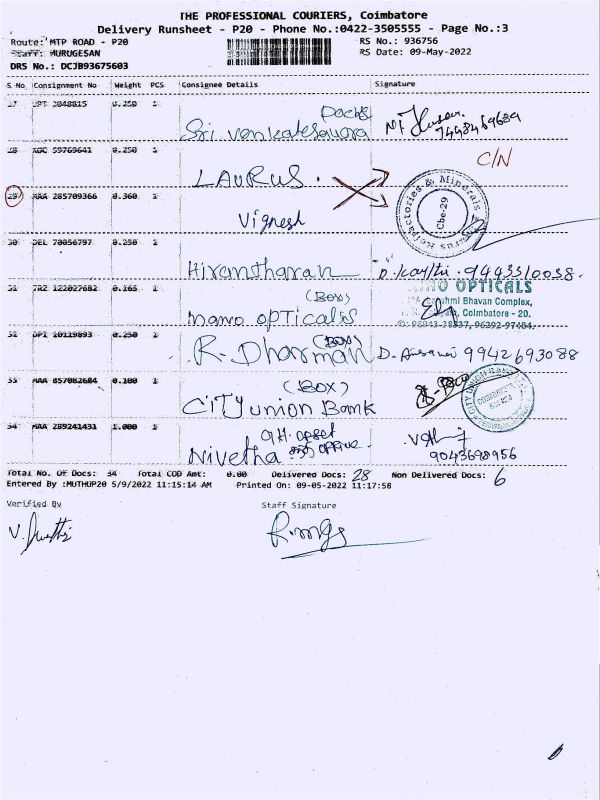 THE PROFESSIONAL COURIERS, Coimbatore
Delivery Runsheet - P20 - Phone No.:0422-3505555 - Page No.:3
Route: MTP ROAD - P20
RS No.: 936756
Staff: MURUGESAN
RS Date: 09-May-2022
DRS No.: DCJB93675603
S No Consignment No Weight PCS Consignee Details Signature
27 JPT 2048815 0.250 1
Sri venkateswara
7498469689
28 KGC 59769641 0.250 1
C/N
LAURUS.
29 MAA 285709366 0.360 1
Refractories & Minerals
Cbe-29
Vignesh
30 DEL 70056797 0.250 1
Hirantharan
9443510038.
31 TRZ 122027682 0.165 1
(Box)
NANO OPTICALS
Lakshmi Bhavan Complex,
Coimbatore - 20.
nano opticals
98943-38837, 96292-97484.
32 DPI 10119893 0.250 1
(Box)
R. Dharman
9942693088
33 MAA 857082684 0.100 1
(BOX)
CITY union Bank
34 MAA 289241431 1.000 1
Nivetha
9043698956
Total No. Of Docs: 34 Total COD Amt: 0.00 Delivered Docs: 28 Non Delivered Docs: 6
Entered By :MUTHUP20 5/9/2022 11:15:14 AM Printed On: 09-05-2022 11:17:58
Verified By
Staff Signature